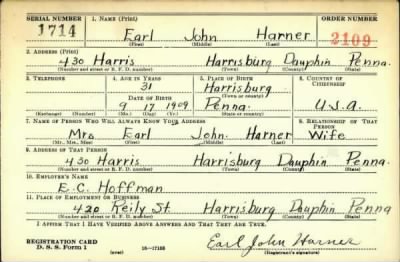 SERIAL NUMBER 1. NAME (Print) ORDER NUMBER
1714 Earl John Harner 2109
(First) (Middle) (Last)
2. ADDRESS (Print)
430 Harris Harrisburg Dauphin Penna.
(Number and street or R. F. D. number) (Town) (County) (State)
3. TELEPHONE 4. AGE IN YEARS 5. PLACE OF BIRTH 6. COUNTRY OF CITIZENSHIP
31 Harrisburg
DATE OF BIRTH (Town or county)
9 17 1909 Penna. U.S.A.
(Mo.) (Day) (Yr.) (State or country)
7. NAME OF PERSON WHO WILL ALWAYS KNOW YOUR ADDRESS 8. RELATIONSHIP OF THAT PERSON
Mrs Earl John. Harner Wife
(Mr., Mrs., Miss) (First) (Middle) (Last)
9. ADDRESS OF THAT PERSON
430 Harris Harrisburg Dauphin Penna.
(Number and street or R. F. D. number) (Town) (County) (State)
10. EMPLOYER'S NAME
E.C. Hoffman
11. PLACE OF EMPLOYMENT OR BUSINESS
420 Reily St. Harrisburg Dauphin Penna
(Number and street or R. F. D. number) (Town) (County) (State)
I AFFIRM THAT I HAVE VERIFIED ABOVE ANSWERS AND THAT THEY ARE TRUE.
REGISTRATION CARD
D. S. S. Form 1 (over) 16—17105 Earl John Harner
(Registrant's signature)